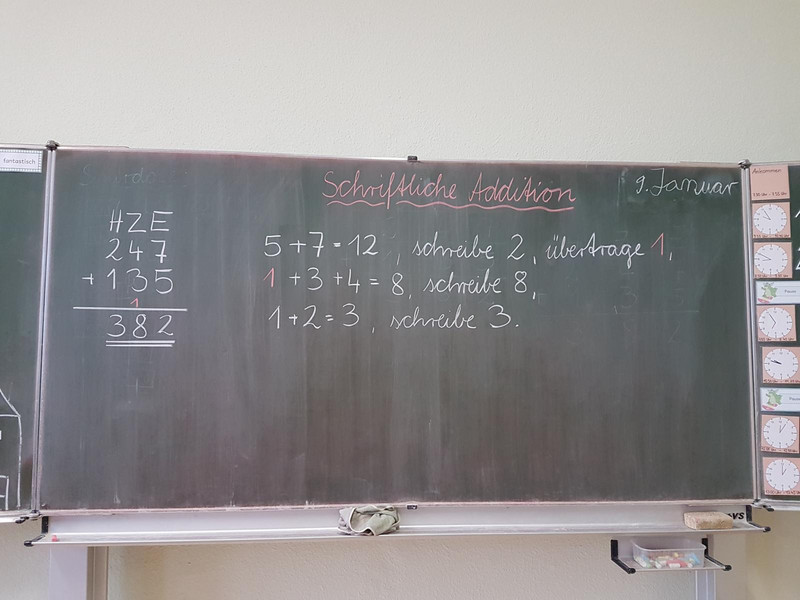 fantastisch
Schriftliche Addition
9. Januar
HZE
247
+ 135
1
382
5 + 7 = 12, schreibe 2, übertrage 1,
1 + 3 + 4 = 8, schreibe 8,
1 + 2 = 3, schreibe 3.
Ankommen
Pause